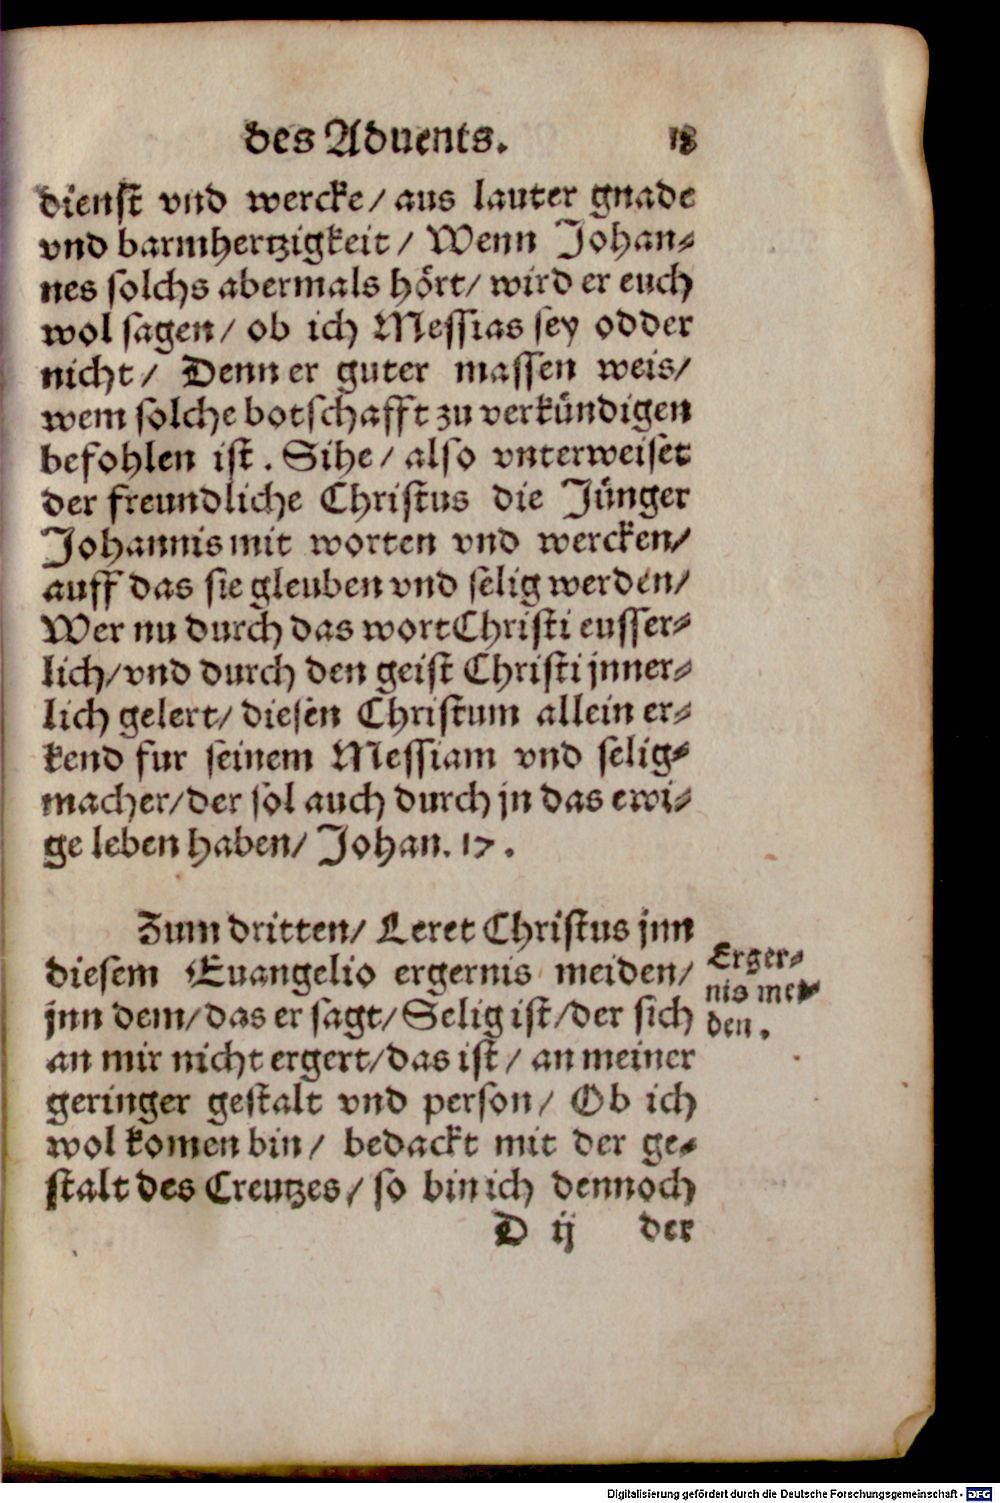 des Aduents. 18
dienst vnd wercke/ aus lauter gnade
vnd barmhertzigkeit/ Wenn Johan⸗
nes solchs abermals hört/ wird er euch
wol sagen/ ob ich Messias sey odder
nicht/ Denn er guter massen weis/
wem solche botschafft zu verkündigen
befohlen ist. Sihe/ also vnterweiset
der freundliche Christus die Jünger
Johannis mit worten vnd wercken/
auff das sie gleuben vnd selig werden/
Wer nu durch das wort Christi eusser⸗
lich/ vnd durch den geist Christi jnner⸗
lich gelert/ diesen Christum allein er⸗
kend fur seinem Messiam vnd selig⸗
macher/ der sol auch durch jn das ewi⸗
ge leben haben/ Johan. 17.
Zum dritten/ Leret Christus jnn
diesem Euangelio ergernis meiden/
jnn dem/ das er sagt/ Selig ist/ der sich
an mir nicht ergert/ das ist/ an meiner
geringer gestalt vnd person/ Ob ich
wol komen bin/ bedackt mit der ge⸗
stalt des Creutzes/ so bin ich dennoch
D ij der
Erger⸗
nis mei⸗
den.
Digitalisierung gefördert durch die Deutsche Forschungsgemeinschaft - DFG